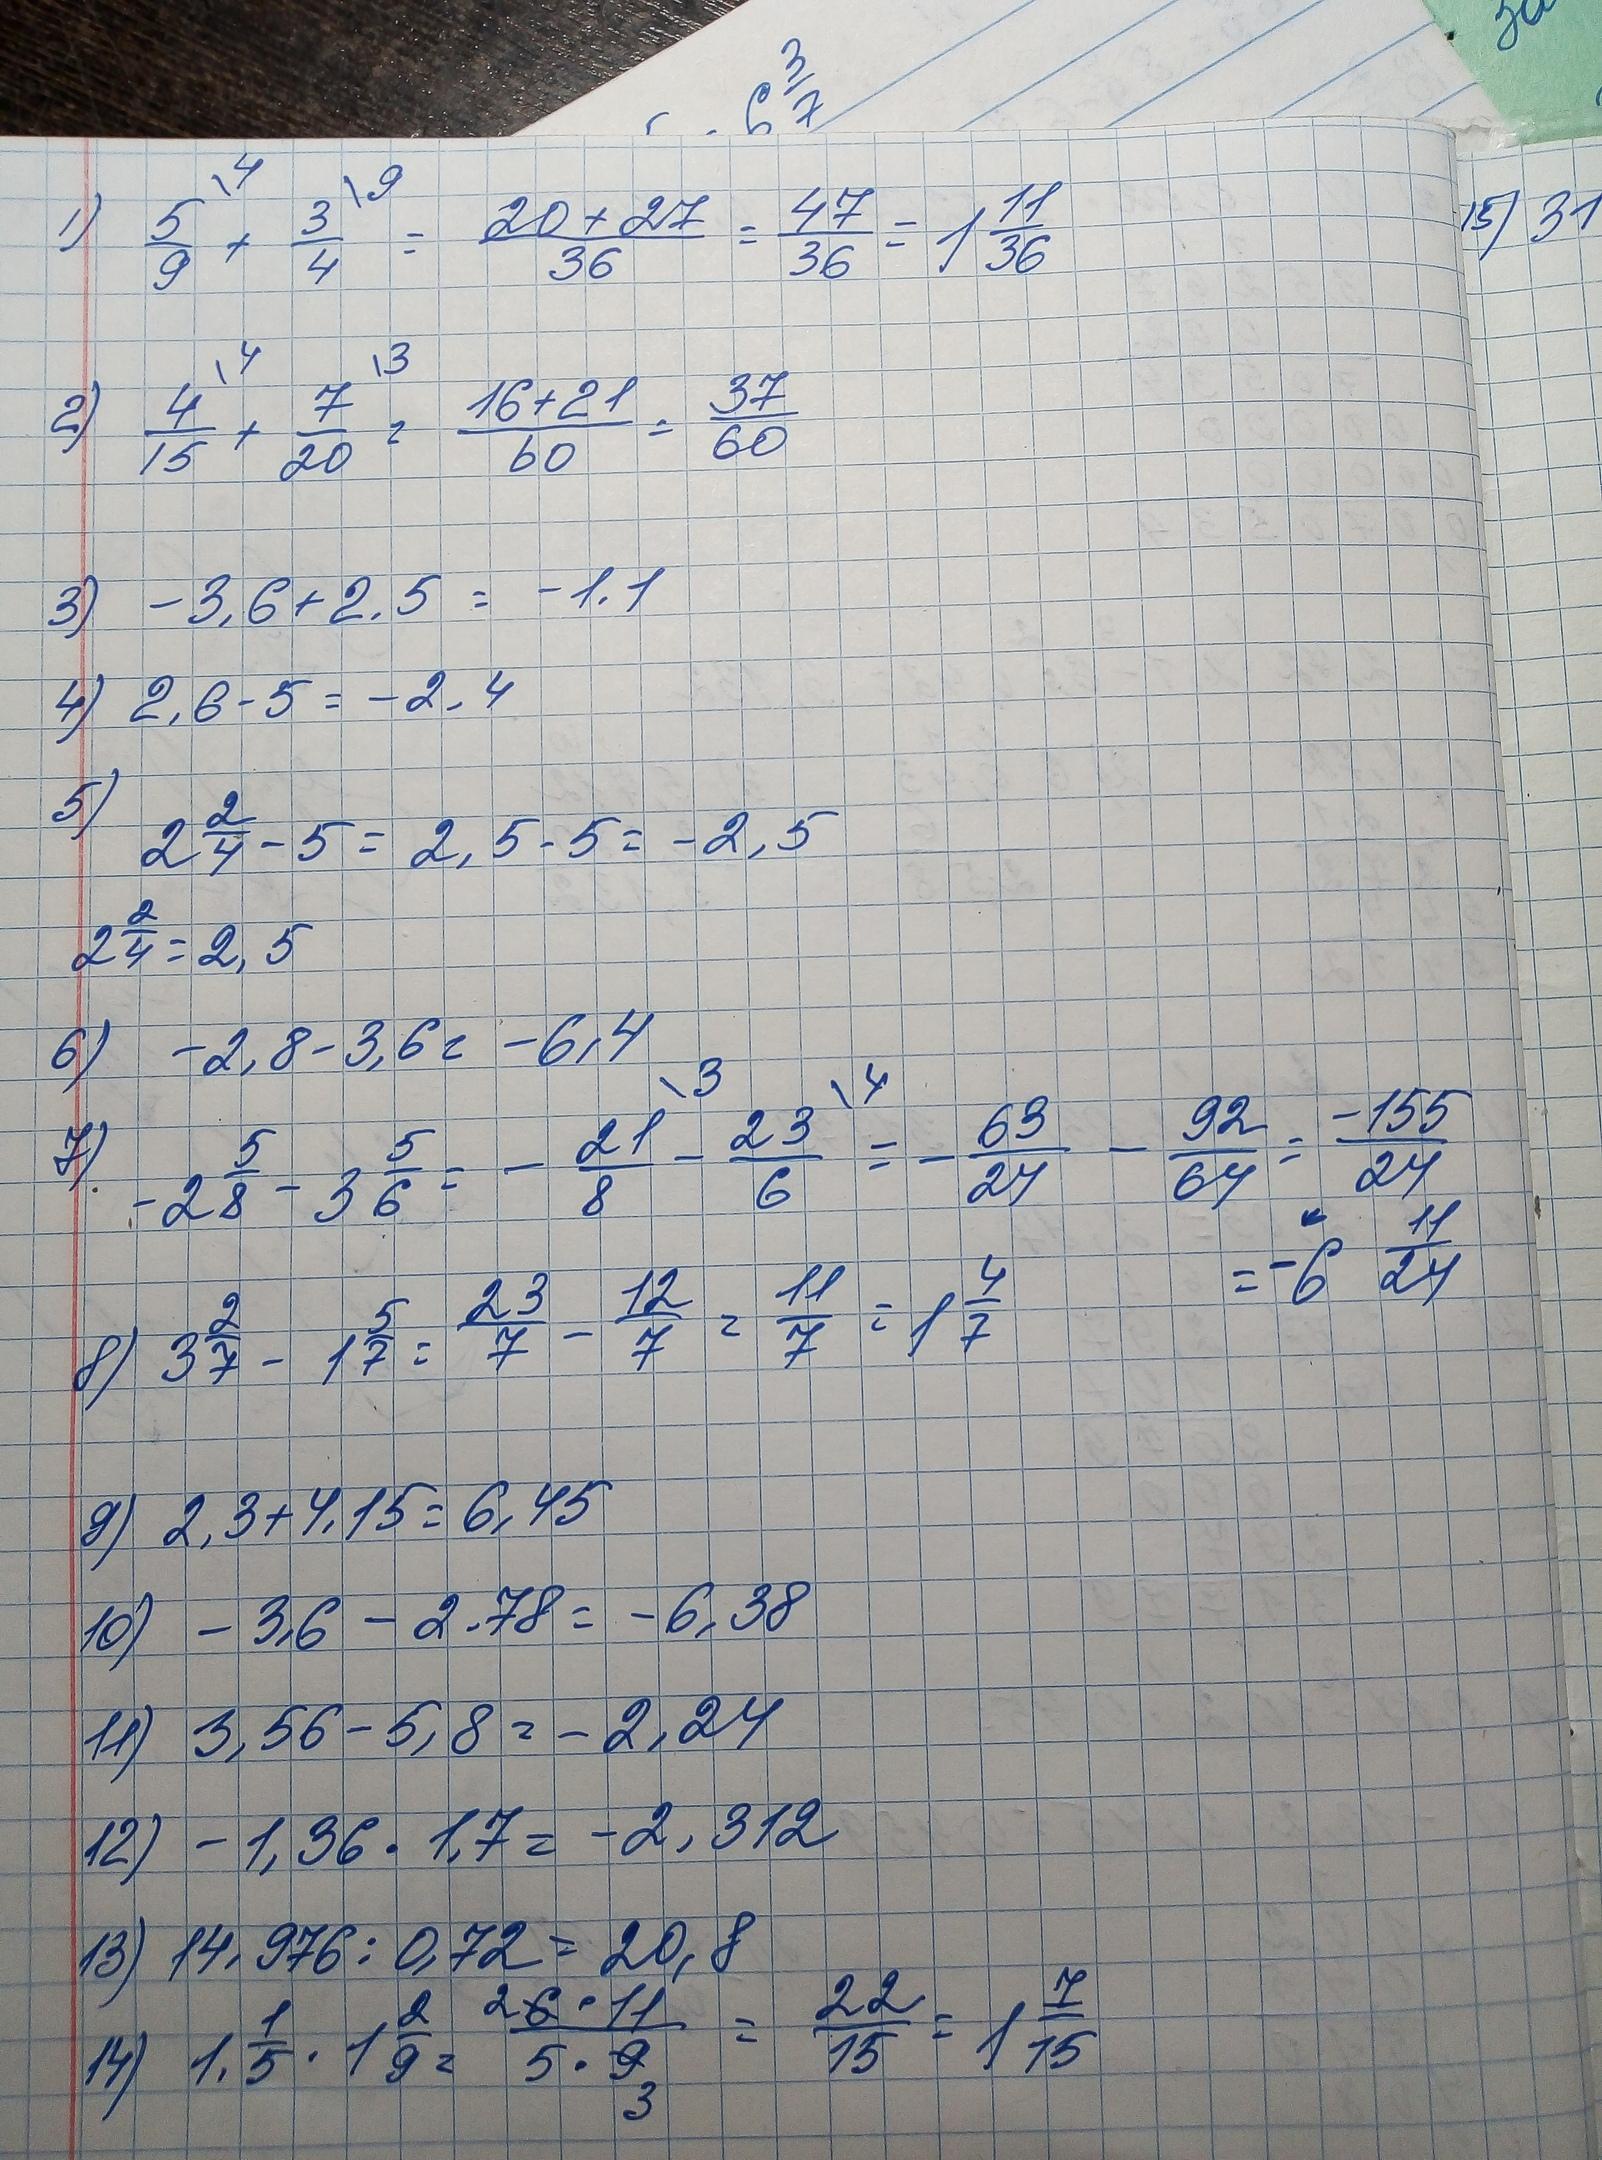 6 3/7
за
1) 5/9 \4 + 3/4 \9 = 20+27/36 = 47/36 = 1 11/36
15) 31
2) 4/15 \4 + 7/20 \3 = 16+21/60 = 37/60
3) -3,6+2.5 = -1.1
4) 2,6-5 = -2.4
5)
2 2/4 - 5 = 2,5-5 = -2,5
2 2/4 = 2,5
6) -2,8-3,6 = -6,4
7) -2 5/8 - 3 5/6 = - 21/8 \3 - 23/6 \4 = - 63/24 - 92/64 = -155/24
= -6 11/24
8) 3 2/7 - 1 5/7 = 23/7 - 12/7 = 11/7 = 1 4/7
9) 2,3+4,15 = 6,45
10) -3,6 - 2.78 = -6,38
11) 3,56-5,8 = -2,24
12) -1,36 · 1,7 = -2,312
13) 14.976 : 0,72 = 20,8
14) 1. 1/5 · 1 2/9 = 2 6·11/5·9 3 = 22/15 = 1 7/15